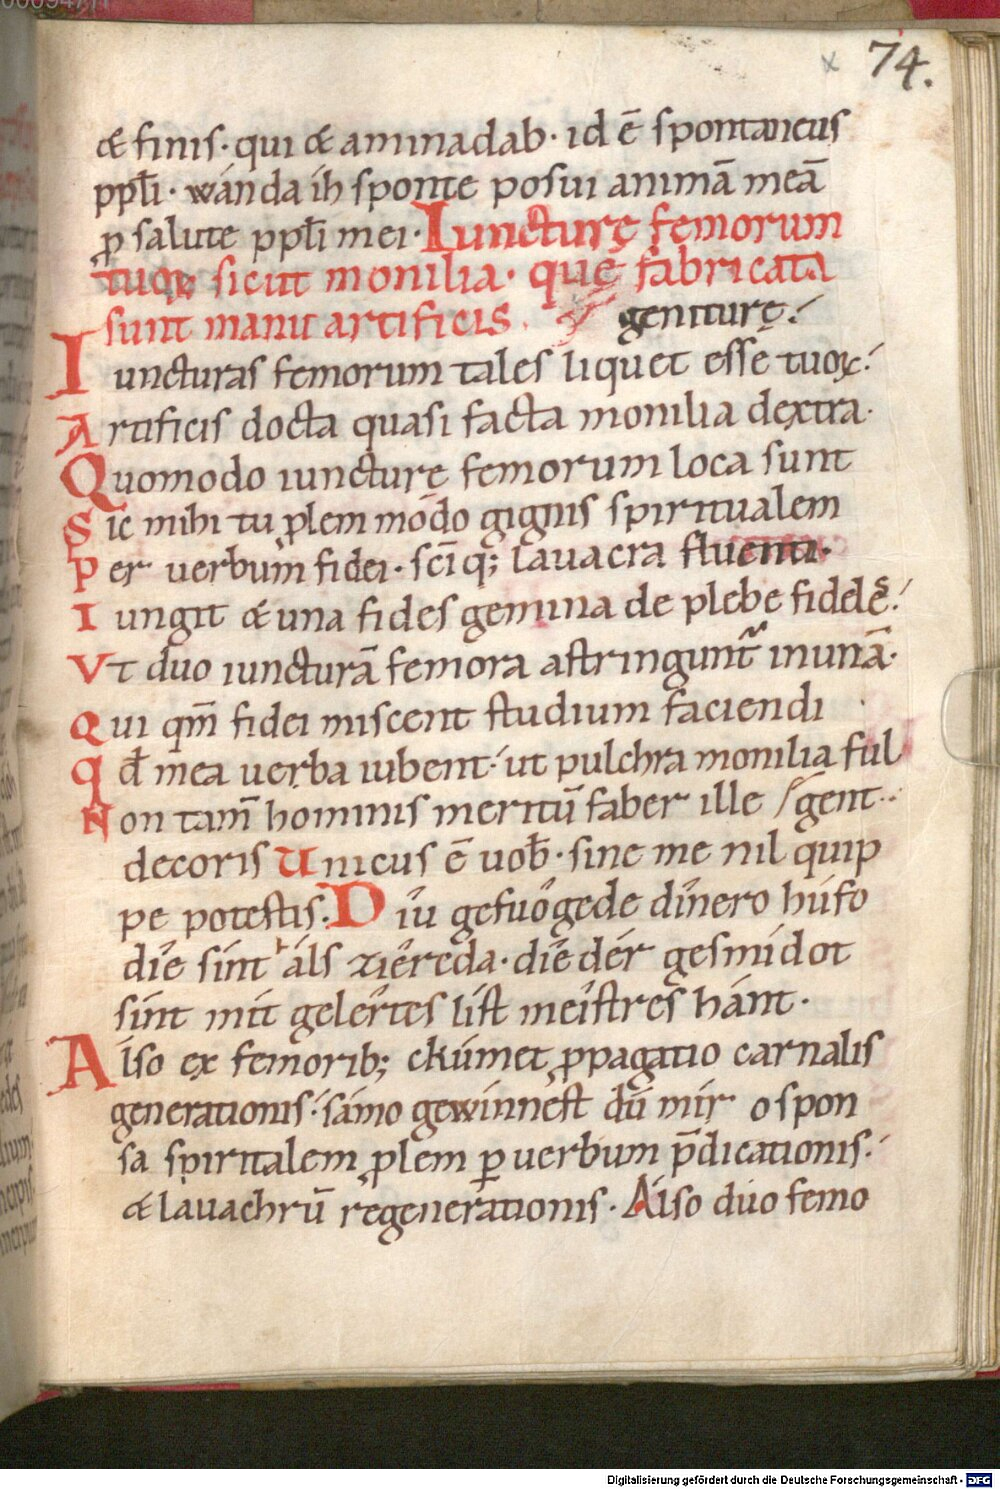 74.
& finis· qui & aminadab· id ē spontaneus
ppl̄i· wánda ih sponte posui animā meā
ꝓ salute ppl̄i mei· Iuncturę femorum
tuoꝝ sicut monilia· quę fabricata
sunt manu artificis.
geniturę·
Iuncturas femorum tales liquet esse tuoꝝ·
Artificis docta quasi facta monilia dextra·
Quomodo iuncturę femorum loca sunt
Sic mihi tu ꝓlem mōdo gignis spiritualem
Per uerbum fidei· sc̄iq; lauacra fluenti·
Iungit & una fides gemina de plebe fideles·
Vt duo iuncturā femora astringunt᷑ in unā·
Qui qm̄ fidei miscent studium faciendi
Qd̄ mea uerba iubent· ut pulchra monilia ful
Non tam̄ hominis meritū faber ille gent··
decoris Unicus ē uob̄· sine me nil quip
pe potestis· Díu gefuógede dínero húfo
díe sínt áls ziéreda· díe dér gesmidot
sínt mit gelértes líst meístres hánt·
Also ex femorib; chúmet ꝓpagatio carnalis
generationis· sámo gewínnest dú mír o spon
sa spiritalem ꝓlem ꝑ uerbum p̄dicationis·
& lauachrū regenerationis· Also duo femo
Digitalisierung gefördert durch die Deutsche Forschungsgemeinschaft - DFG